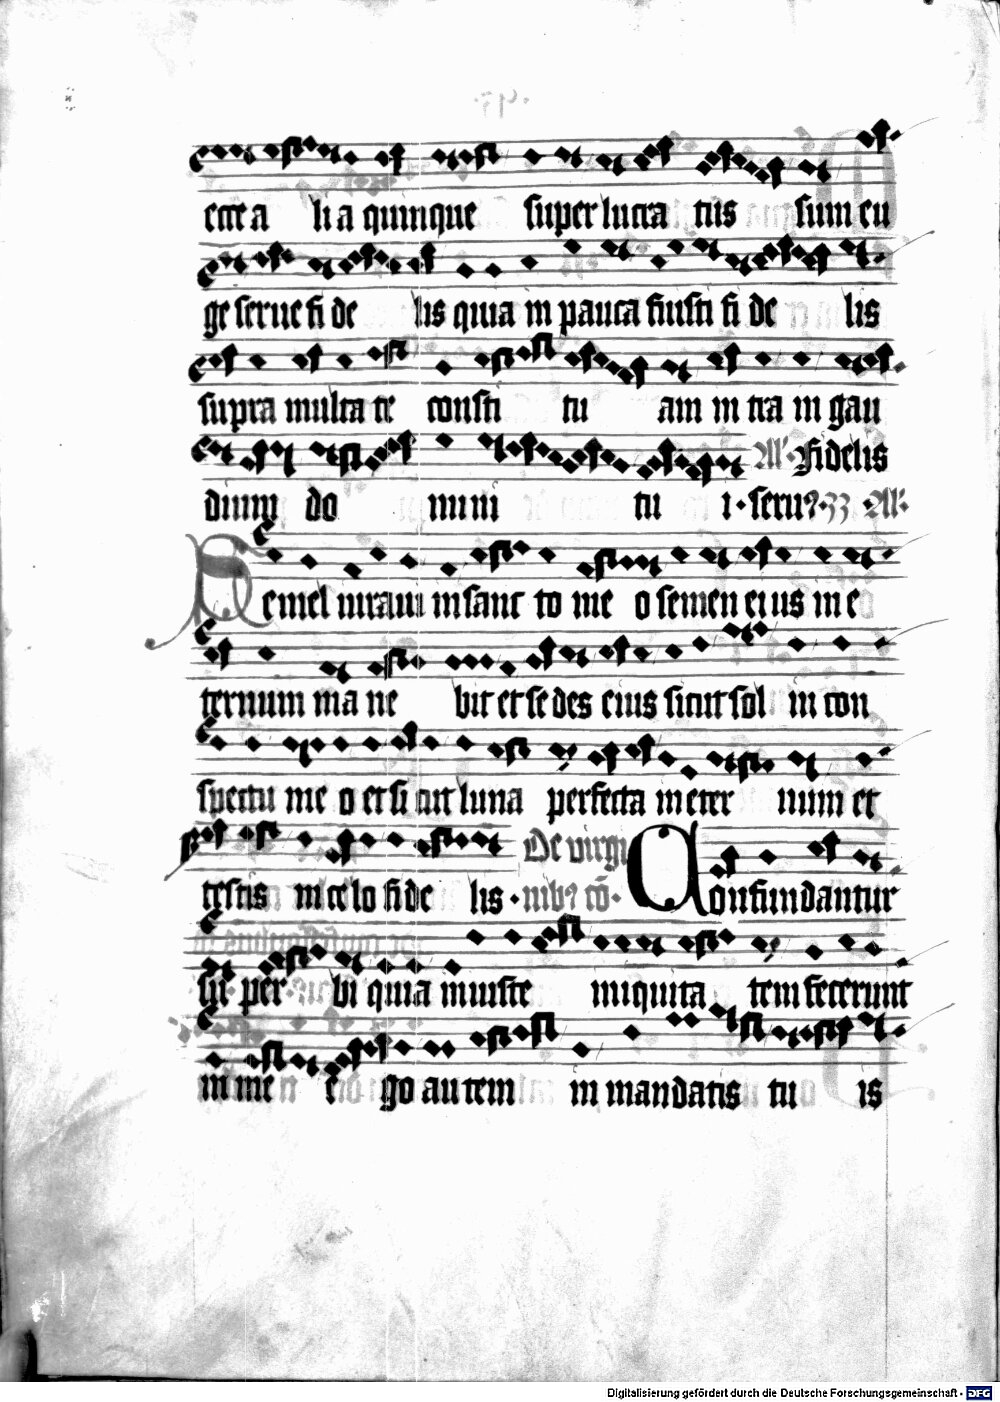 ecce a li a quinque super lucra tus sum eu
ge serue fi de lis quia in pauca fuisti fi de lis
supra multa te consti tu am in tra in gau
All'. Fidelis
dium do mini tu i. seru9. 33 All'.
Semel iuraui in sanc to me o semen ei us in e
ternum ma ne bit et se des eius sicut sol in con
spectu me o et si cut luna perfecta in eter num et
De virgi
testis in ce lo fi de lis. nib9 cō. Confundantur
su per bi quia iniuste iniquita tem fecerunt
in me e go autem in mandatis tu is
Digitalisierung gefördert durch die Deutsche Forschungsgemeinschaft - DFG